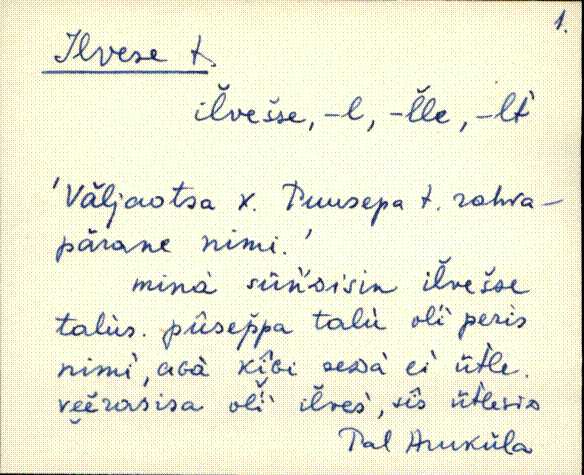 1.
Ilvese t.
iĺvešse, -l, -l̆le, -lt
'Väljaotsa k. Puusepa t. rahva-
pärane nimi.'
minà sü̂ńdisin iĺvešse
talùs. pûseppa talù oĺi peris
nimì, abà kîbi sedà ei üt̀le.
oĺi iĺves̀, sîs üt̀lesis
Pal Aruküla